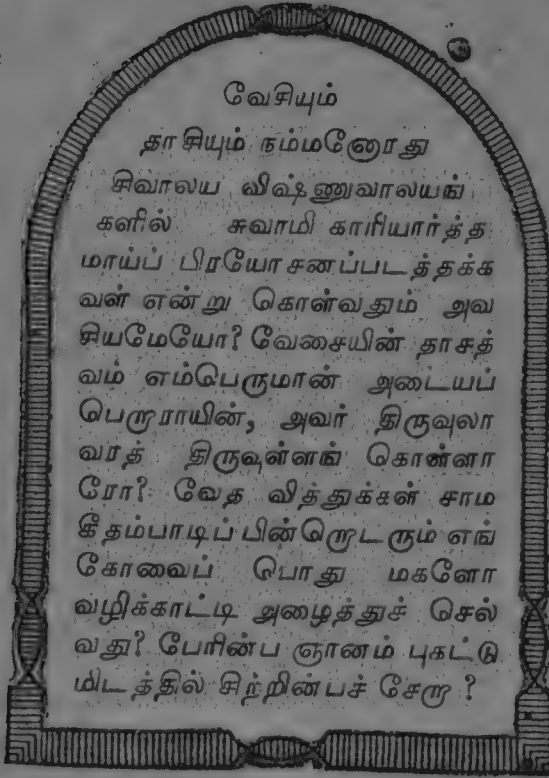 வேசியும்
தாசியும் நம்மனோரது
சிவாலய விஷ்ணுவாலயங்
களில் சுவாமி காரியார்த்த
மாய்ப் பிரயோசனப்படத்தக்க
வள் என்று கொள்வதும் அவ
சியமேயோ? வேசையின் தாசத்
வம் எம்பெருமான் அடையப்
பெறாராயின், அவர் திருவுலா
வரத் திருவுள்ளங் கொள்ளா
ரோ? வேத வித்துக்கள் சாம
கீதம்பாடிப் பின்றொடரும் எங்
கோவைப் பொது மகளோ
வழிக்காட்டி அழைத்துச் செல்
வது? பேரின்ப ஞானம் புகட்டு
மிடத்தில் சிற்றின்பச் சேறு?